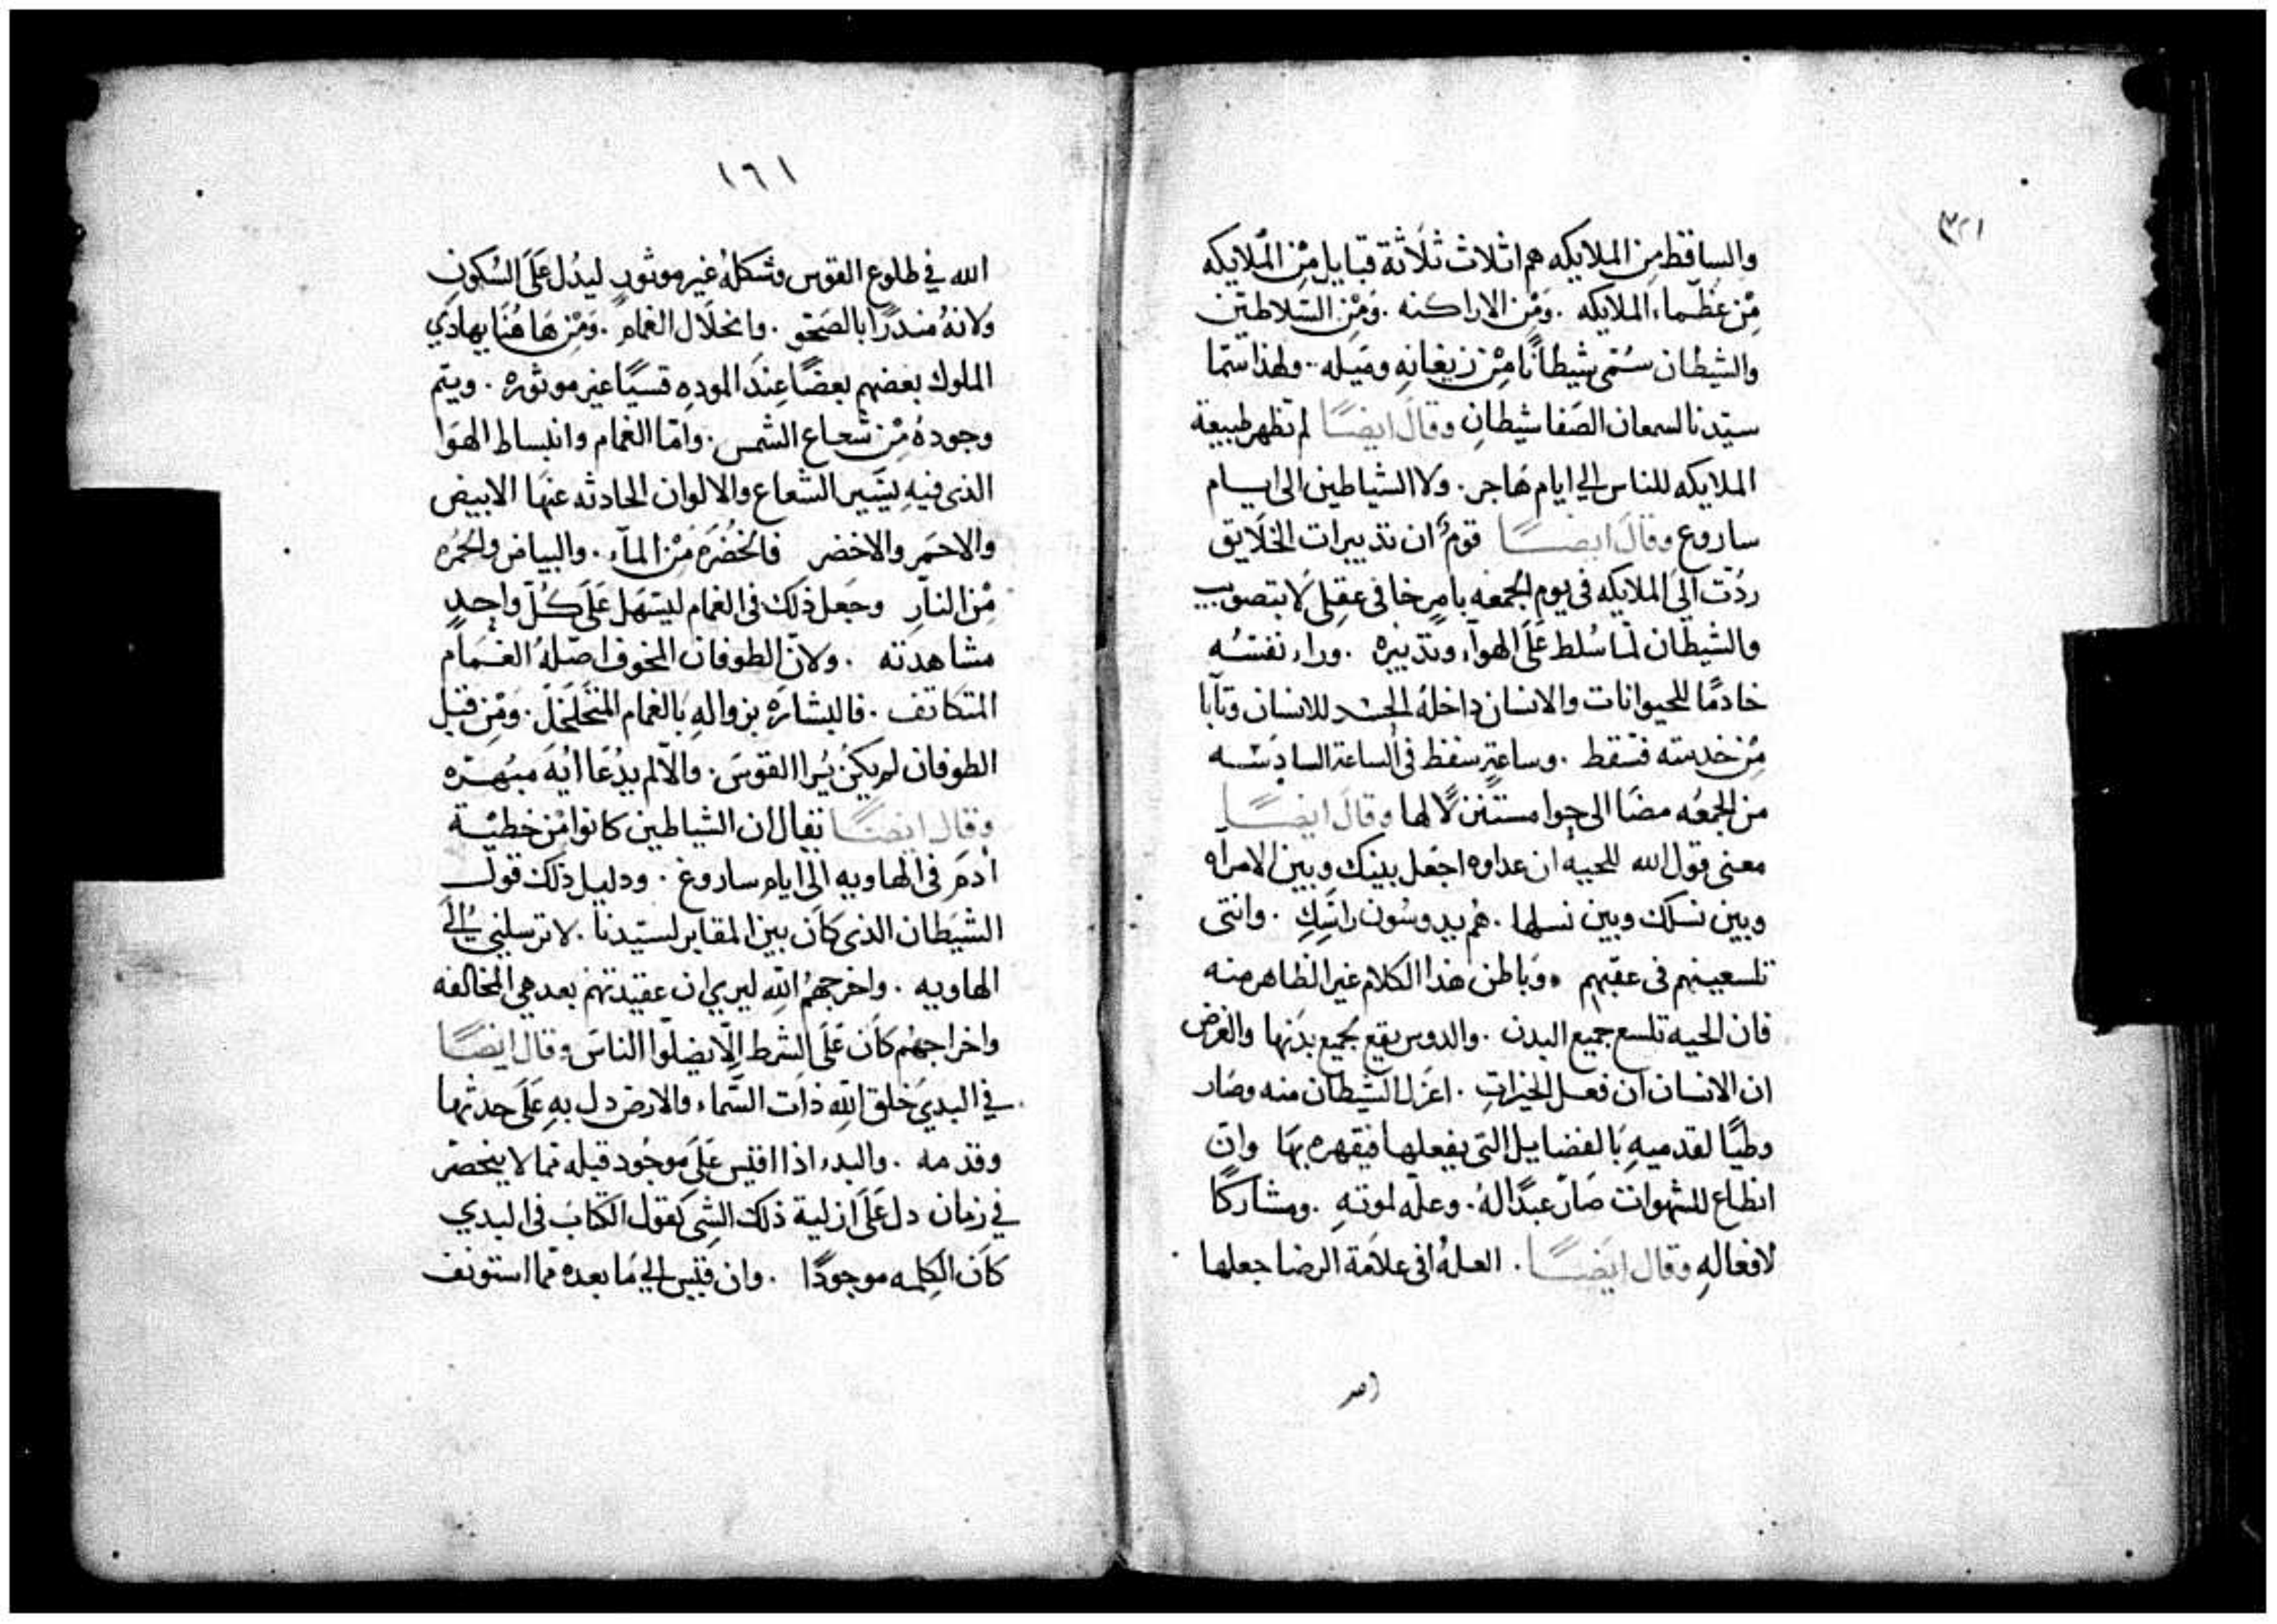 ٣٢١
والساقط من الملايكه هم اثلاث ثلاثة قبايل من الملايكه
من عظماء الملايكه . ومن الاراكنه . ومن السلاطين
والشيطان سمي شيطانا من زيغانه وميله . ولهذا سما
سيدنا لسمعان الصفا شيطان وقال ايضا لم تظهر طبيعة
الملايكه للناس الى ايام هاجر . ولا الشياطين الى ايام
ساروع وقال ايضا قوم ان تدبيرات الخلايق
ردت الى الملايكه فى يوم الجمعه بامر خافى عقلى لا بتصويب
والشيطان لما سلط على الهواء وتدبيره . وراء نفسه
خادما للحيوانات والانسان داخله الحسد للانسان وتابا
من خدمته فسقط . وساعة سقط فى الساعة السادسه
من الجمعه مضا الى حوا مستنزلا لها وقال ايضا
معنى قول الله للحيه ان عداوه اجعل بينك وبين الامراه
وبين نسلك وبين نسلها . هم يدوسون راسك . وانتى
تلسعينهم فى عقبهم . وباطن هذا الكلام غير الظاهر منه
فان الحيه تلسع جميع البدن . والدوس يقع بجميع بدنها والغرض
ان الانسان ان فعل الخيرات . اعزل الشيطان منه وصار
وطيا لقدميه بالفضايل التى يفعلها فيقهره بها وان
انطاع للشهوات صار عبدا له . وعله لموته . ومشاركا
لافعاله وقال ايضا . العله فى علامة الرضا جعلها
١٦١
الله في طلوع القوس وشكله غير موثور ليدل على السكون
ولانه منذرا بالصحو . وانحلال الغمام . ومن هاهنا يهادي
الملوك بعضهم بعضا عند الموده قسيا غير موثوره . ويتم
وجوده من شعاع الشمس . واما الغمام وانبساط الهوا
الذى فيه يسير الشعاع والالوان الحادثه عنها الابيض
والاحمر والاخضر فالخضره من الماء . والبياض والحمره
من النار وجعل ذلك فى الغمام ليسهل على كل واحد
مشاهدته . ولان الطوفان المخوف اصله الغمام
المتكاثف . فالبشاره بزواله بالغمام المتخلخل . ومن قبل
الطوفان لم يكن يرا القوس . والا لم يدعا ايه مبهره
وقال ايضا يقال ان الشياطين كانوا من خطية
آدم فى الهاويه الى ايام ساروغ . ودليل ذلك قول
الشيطان الذى كان بين المقابر لسيدنا . لا ترسلني الى
الهاويه . واخرجهم الله ليري ان عقيدتهم بعد هي المخالفه
واخراجهم كان على الشرط الا يضلوا الناس وقال ايضا
في البدي خلق الله ذات السماء والارض دل به على حدثهما
وقدمه . والبدء اذا اقيس على موجود قبله مما لا ينحصر
في زمان دل على ازلية ذلك الشى كقول الكتاب فى البدي
كان الكلمه موجودا . وان قيس الى ما بعده مما استونف